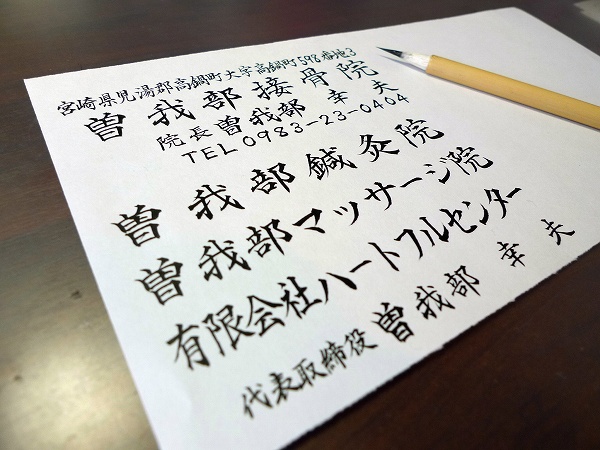 宮崎県児湯郡高鍋町大字高鍋町598番地3
曽我部接骨院
院長曽我部 幸夫
TEL0983-23-0404
曽我部鍼灸院
曽我部マッサージ院
有限会社ハートフルセンター
代表取締役曽我部 幸夫